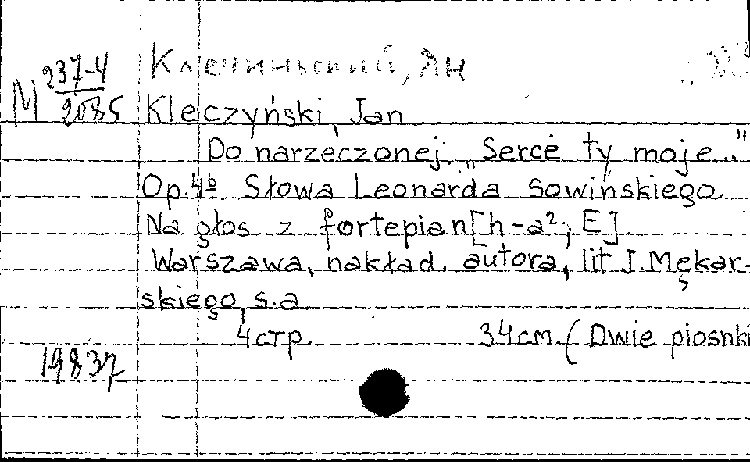 Клечиньский, Ян
М 237-4
2085
Kleczyński, Jan
Do narzeczonej. „Serce ty moje..."
Op.4ª Słowa Leonarda Sowińskiego.
Na głos z fortepian[h-a²; E]
Warszawa, nakład. autora, lit J. Mękar-
skiego, s.a
4 стр. 34 см. (Dwie piosnki
19837